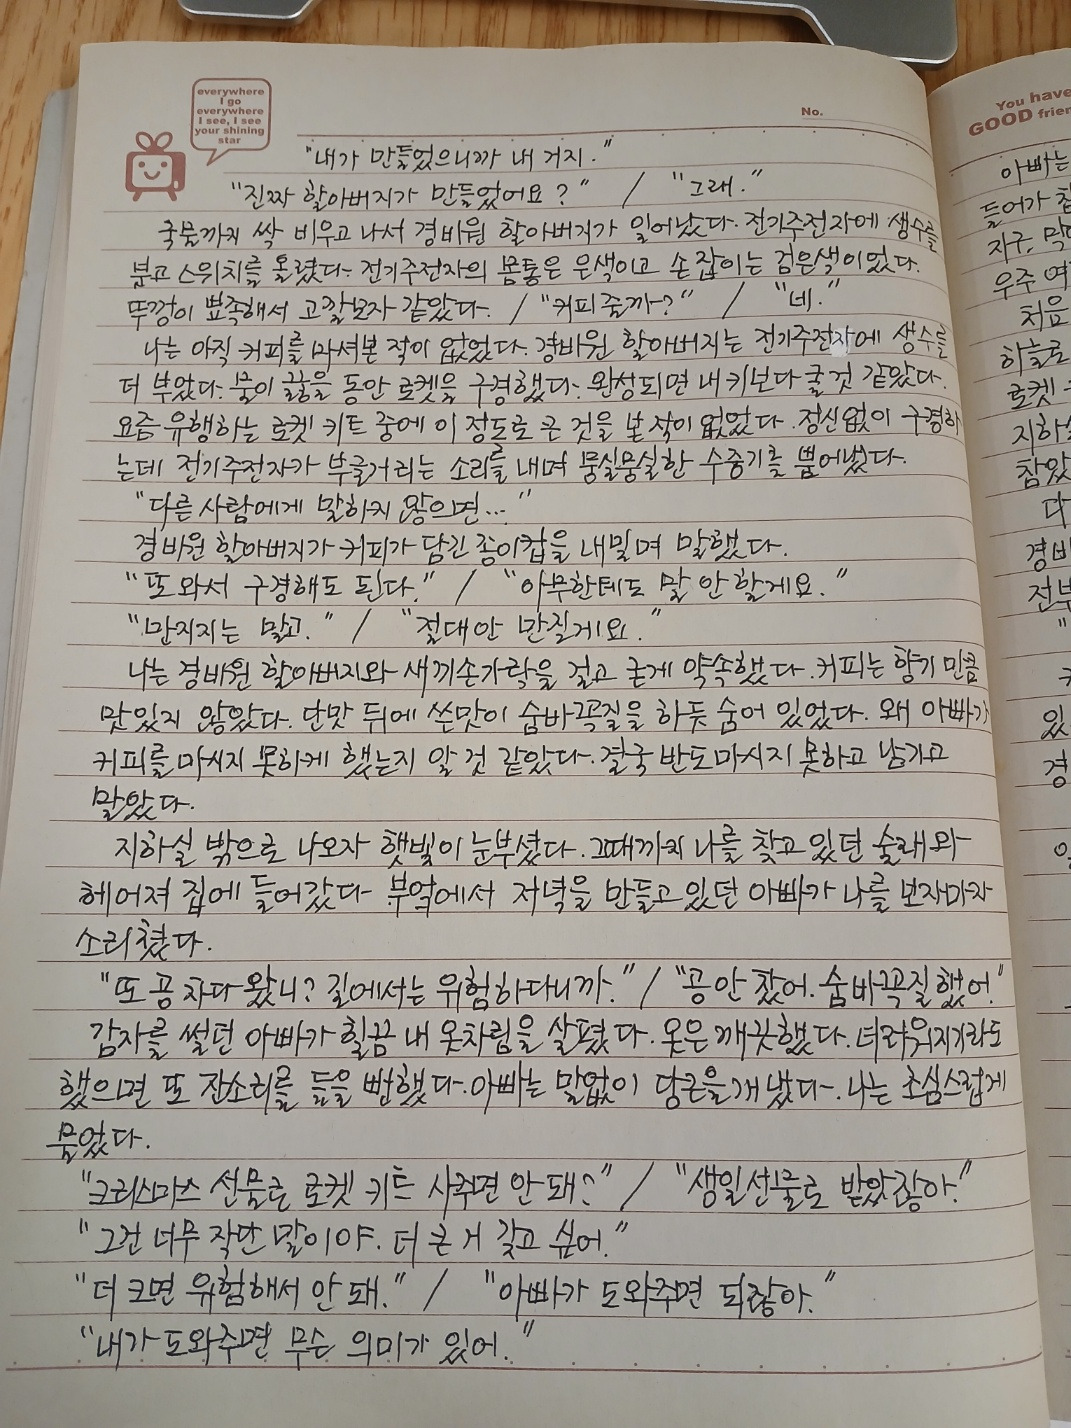 everywhere
I go
everywhere
I see, I see
your shining
star
No.
You have
GOOD
"내가 만들었으니까 내 거지."
"진짜 할아버지가 만들었어요?" / "그래."
국물까지 싹 비우고 나서 경비원 할아버지가 일어났다. 전기주전자에 생수를
붓고 스위치를 올렸다. 전기주전자의 몸통은 은색이고 손잡이는 검은색이었다.
뚜껑이 뾰족해서 고깔모자 같았다. / "커피 줄까?" / "네."
나는 아직 커피를 마셔본 적이 없었다. 경비원 할아버지는 전기주전자에 생수를
더 부었다. 물이 끓을 동안 로켓을 구경했다. 완성되면 내 키보다 클 것 같았다.
요즘 유행하는 로켓 키트 중에 이 정도로 큰 것을 본 적이 없었다. 정신없이 구경하
는데 전기주전자가 부글거리는 소리를 내며 뭉실뭉실한 수증기를 뿜어냈다.
"다른 사람에게 말하지 않으면..."
경비원 할아버지가 커피가 담긴 종이컵을 내밀며 말했다.
"또 와서 구경해도 된다." / "아무한테도 말 안 할게요."
"만지지는 말고." / "절대 안 만질게요."
나는 경비원 할아버지와 새끼손가락을 걸고 굳게 약속했다. 커피는 향기 만큼
맛있지 않았다. 단맛 뒤에 쓴맛이 숨바꼭질을 하듯 숨어 있었다. 왜 아빠가
커피를 마시지 못하게 했는지 알 것 같았다. 결국 반도 마시지 못하고 남기고
말았다.
지하실 밖으로 나오자 햇빛이 눈부셨다. 그때까지 나를 찾고 있던 술래와
헤어져 집에 들어갔다. 부엌에서 저녁을 만들고 있던 아빠가 나를 보자마자
소리쳤다.
"또 공 차다 왔니? 길에서는 위험하다니까." / "공 안 찼어. 숨바꼭질 했어."
감자를 썰던 아빠가 힐끔 내 옷차림을 살폈다. 옷은 깨끗했다. 더러워지기라도
했으면 또 잔소리를 들을 뻔했다. 아빠는 말없이 당근을 꺼냈다. 나는 조심스럽게
물었다.
"크리스마스 선물로 로켓 키트 사주면 안 돼?" / "생일선물로 받았잖아."
"그건 너무 작단 말이야. 더 큰 거 갖고 싶어."
"더 크면 위험해서 안 돼." / "아빠가 도와주면 되잖아."
"내가 도와주면 무슨 의미가 있어."